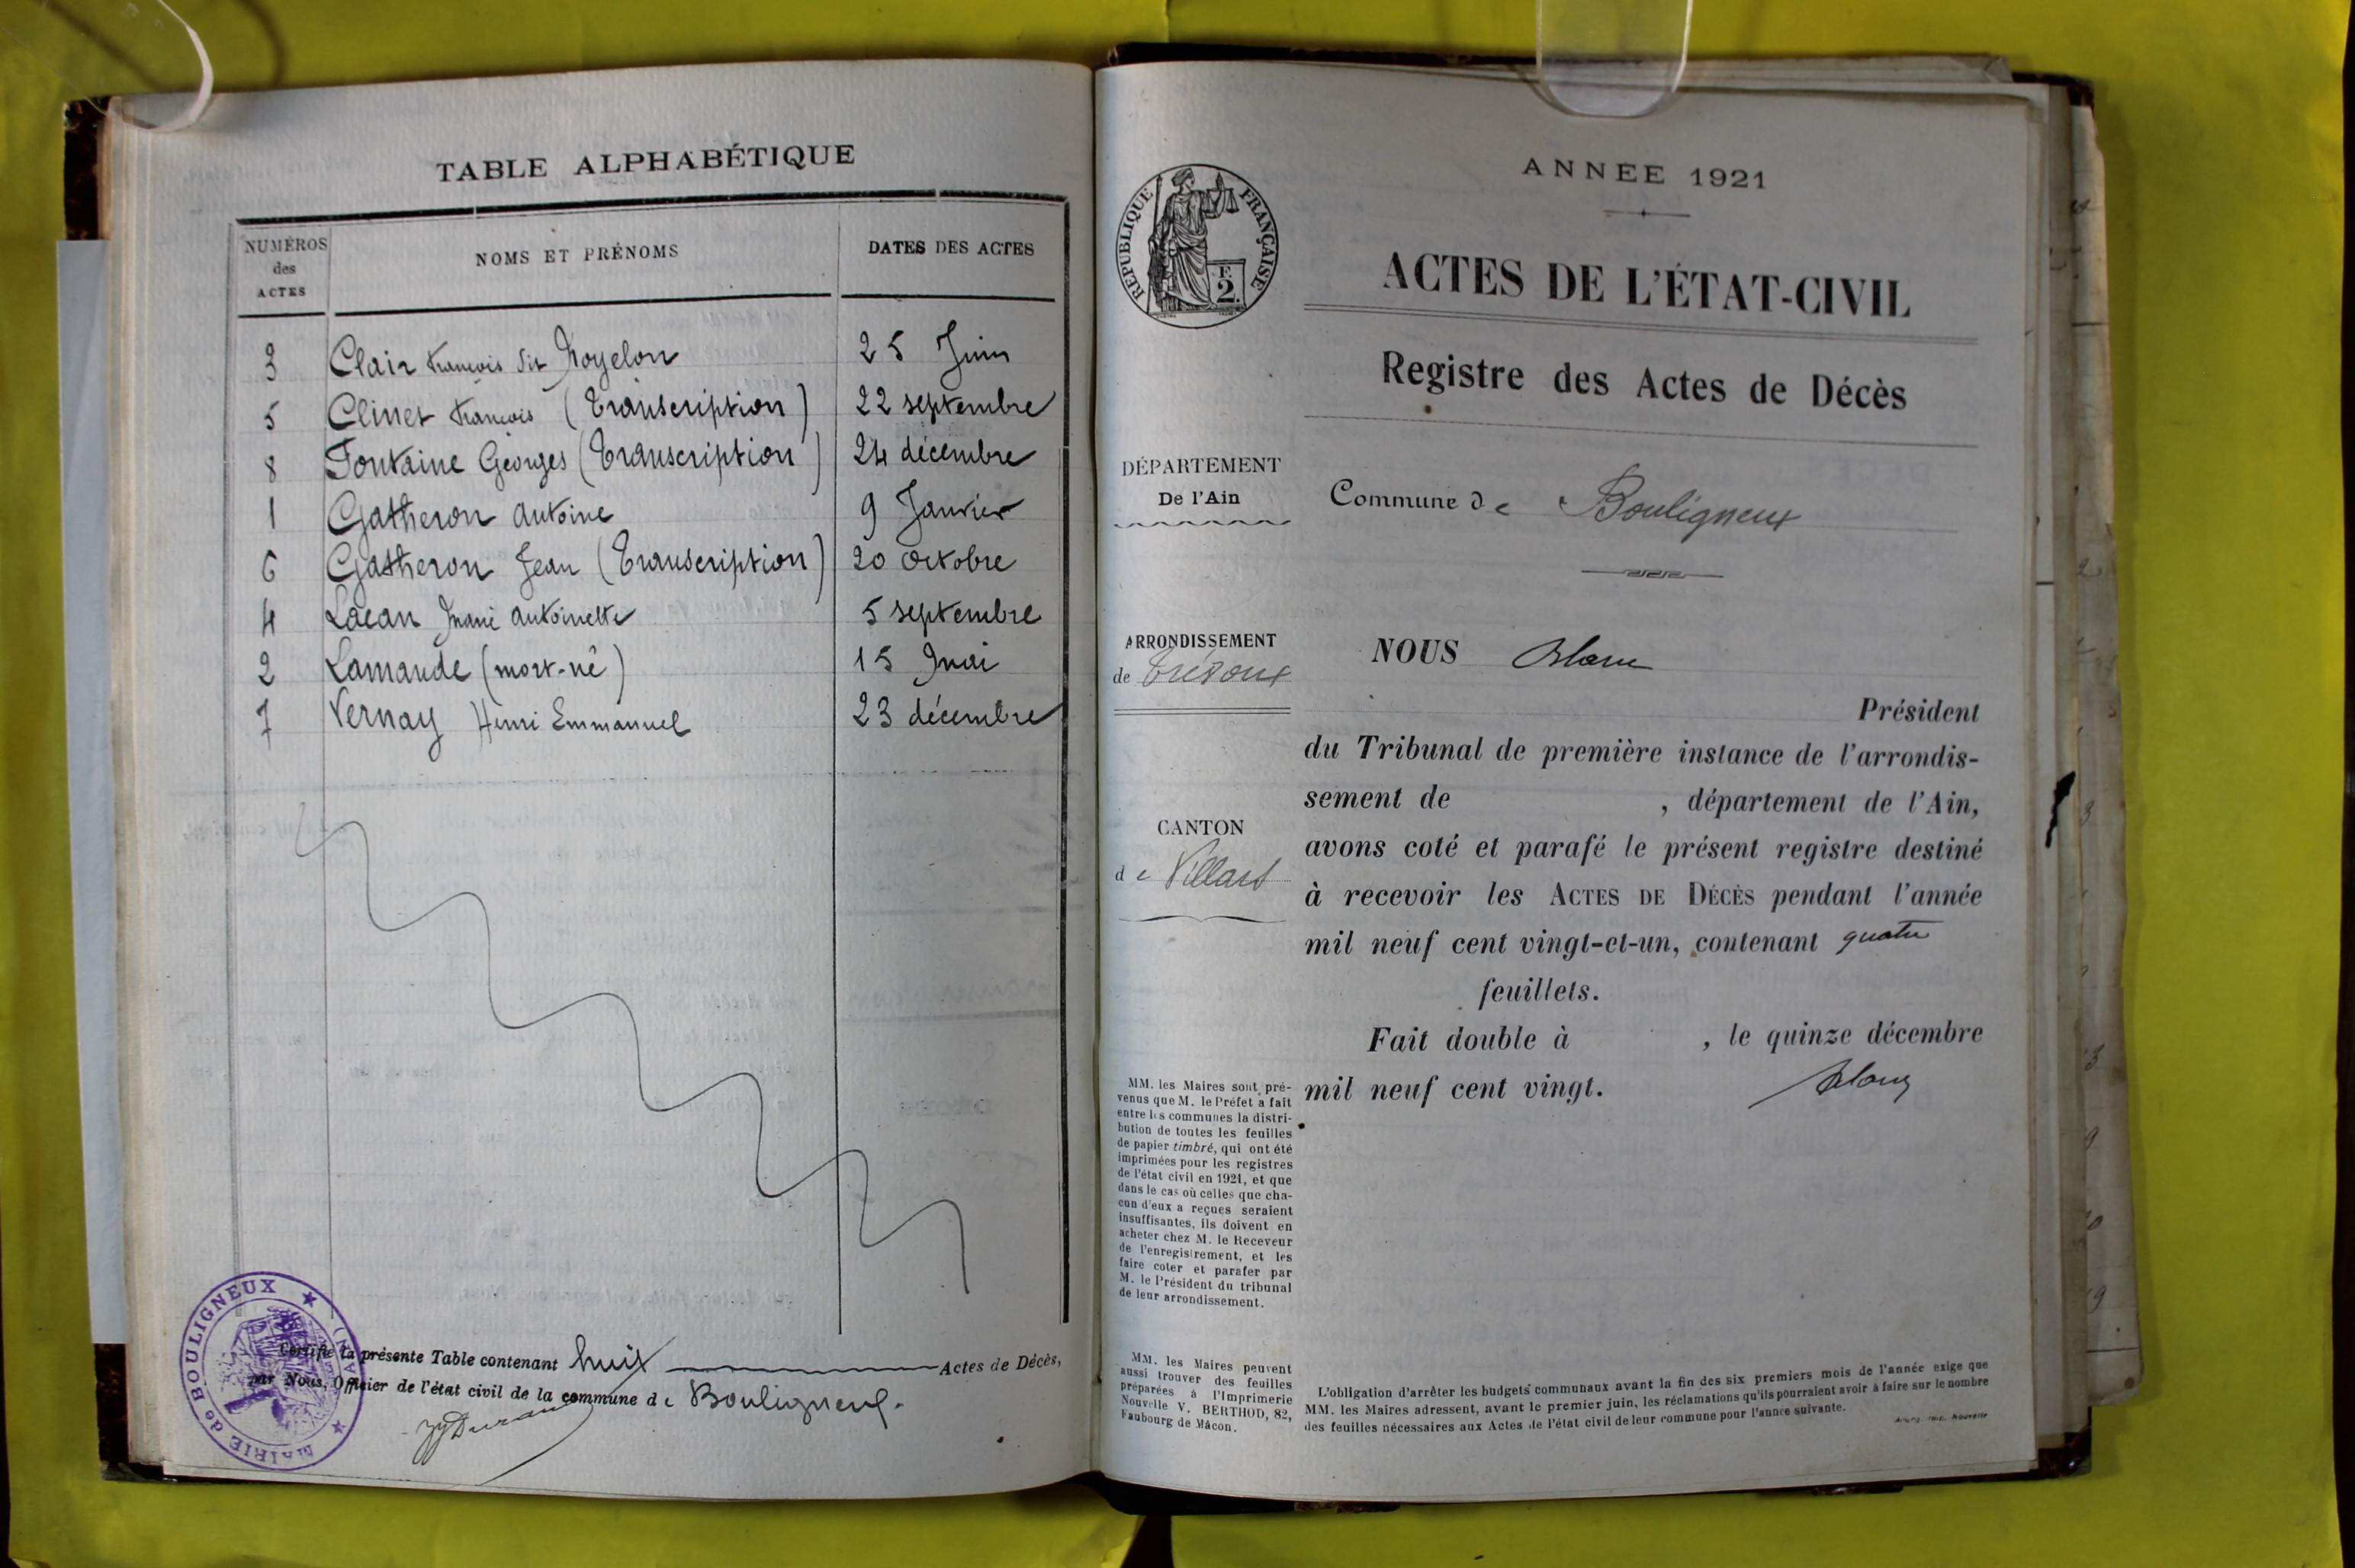 TABLE ALPHABÉTIQUE
NUMÉROS des ACTES
NOMS ET PRÉNOMS
DATES DES ACTES
3 Clair François dit Noyelon 25 Juin
5 Clinet François (Transcription) 22 septembre
8 Fontaine Georges (Transcription) 24 décembre
1 Gatheron Antoine 9 Janvier
6 Gatheron Jean (Transcription) 20 Octobre
4 Lacan Marie Antoinette 5 septembre
2 Lamaude (mort-né) 15 Mai
7 Vernay Henri Emmanuel 23 décembre
Certifié la présente Table contenant huit Actes de Décès,
par Nous, Officier de l'état civil de la commune de Bouligneux.
MAIRIE de BOULIGNEUX (AIN)
ANNÉE 1921
RÉPUBLIQUE FRANÇAISE
F.
2.
ACTES DE L'ÉTAT-CIVIL
Registre des Actes de Décès
DÉPARTEMENT
De l'Ain
Commune de Bouligneux
ARRONDISSEMENT
de Trévoux
NOUS Blanc
Président
du Tribunal de première instance de l'arrondis-
sement de , département de l'Ain,
CANTON
de Villars
avons coté et parafé le présent registre destiné
à recevoir les ACTES DE DÉCÈS pendant l'année
mil neuf cent vingt-et-un, contenant quatre
feuillets.
Fait double à , le quinze décembre
mil neuf cent vingt.
Blanc
MM. les Maires sont pré-
venus que M. le Préfet a fait
entre les communes la distri-
bution de toutes les feuilles
de papier timbré, qui ont été
imprimées pour les registres
de l'état civil en 1921, et que
dans le cas où celles que cha-
cun d'eux a reçues seraient
insuffisantes, ils doivent en
acheter chez M. le Receveur
de l'enregistrement, et les
faire coter et parafer par
M. le Président du tribunal
de leur arrondissement.
MM. les Maires peuvent
aussi trouver des feuilles
préparées à l'Imprimerie
Nouvelle V. BERTHOD, 82,
Faubourg de Mâcon.
L'obligation d'arrêter les budgets communaux avant la fin des six premiers mois de l'année exige que
MM. les Maires adressent, avant le premier juin, les réclamations qu'ils pourraient avoir à faire sur le nombre
des feuilles nécessaires aux Actes de l'état civil de leur commune pour l'année suivante.
Bourg. Imp. Nouvelle